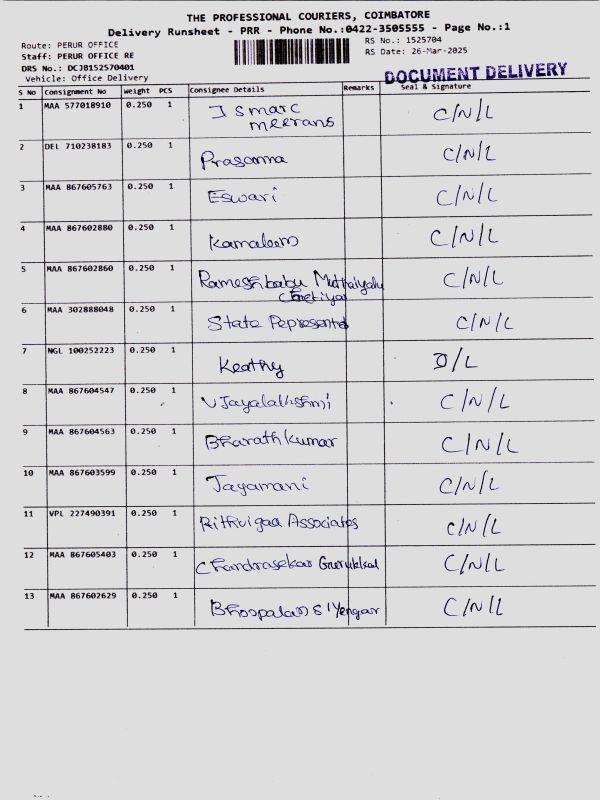 THE PROFESSIONAL COURIERS, COIMBATORE
Delivery Runsheet - PRR - Phone No.:0422-3505555 - Page No.:1
Route: PERUR OFFICE
RS No.: 1525704
Staff: PERUR OFFICE RE
RS Date: 26-Mar-2025
DRS No.: DCJB152570401
Vehicle: Office Delivery
DOCUMENT DELIVERY
S No Consignment No Weight PCS Consignee Details Remarks Seal & Signature
1 MAA 577018910 0.250 1 Ismarc C/N/L
meerans
2 DEL 710238183 0.250 1 Prasanna C/N/L
3 MAA 867605763 0.250 1 Eswari C/N/L
4 MAA 867602880 0.250 1 C/N/L
5 MAA 867602860 0.250 1 Rameshbabu C/N/L
6 MAA 302888048 0.250 1 State C/N/L
7 NGL 100252223 0.250 1 Keathy D/L
8 MAA 867604547 0.250 1 V Jayalakshmi C/N/L
9 MAA 867604563 0.250 1 Bharath kumar C/N/L
10 MAA 867603599 0.250 1 Jayamani C/N/L
11 VPL 227490391 0.250 1 Rithvigaa Associates C/N/L
12 MAA 867605403 0.250 1 Chandrasekar Gurukkal C/N/L
13 MAA 867602629 0.250 1 C/N/L